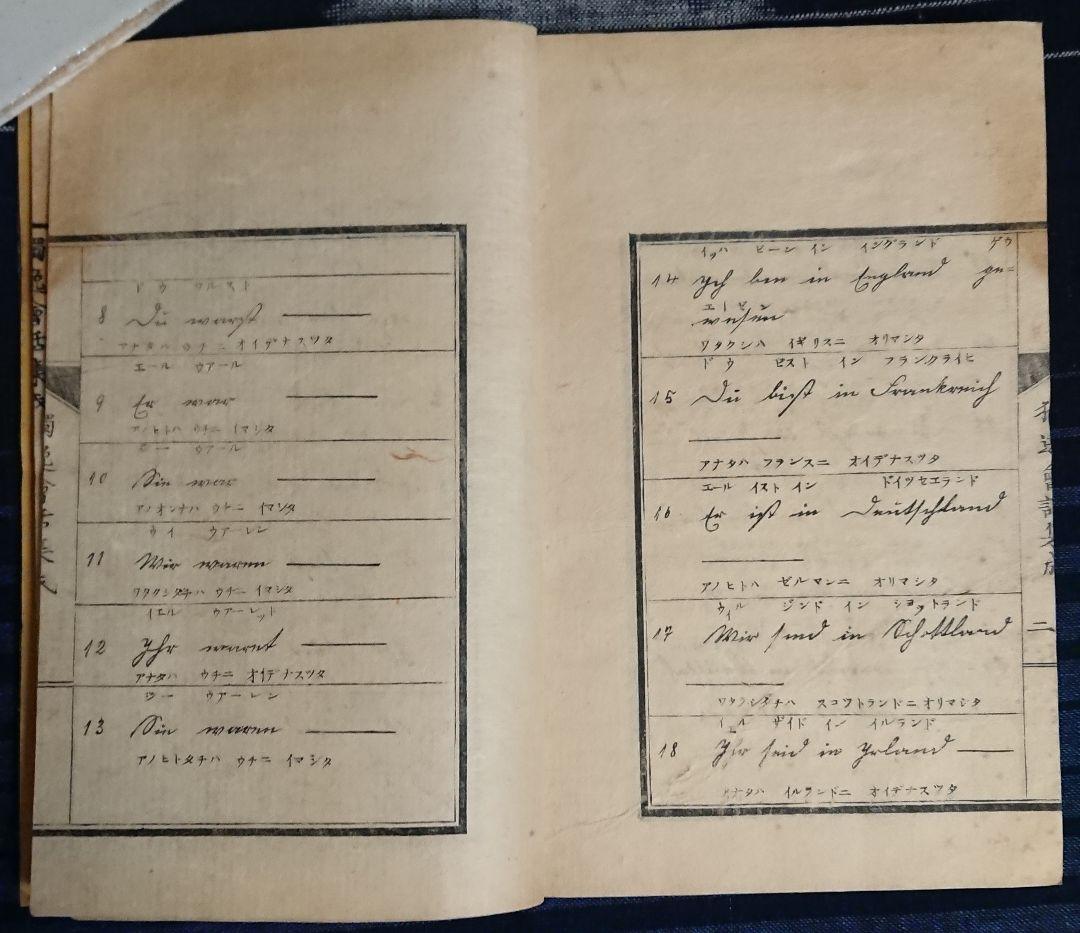 ドウ ワルスト
8 Du warst ———
アナタハ ウチニ オイデナスツタ
エール ウアール
9 Er war ———
アノヒトハ ウチニ イマシタ
ジー ウアール
10 Sie war ———
アノオンナハ ウチニ イマシタ
ウイ ウアーレン
11 Wir waren ———
ワタクシダチハ ウチニ イマシタ
イエル ウアーレット
12 Ihr waret ———
アナタハ ウチニ オイデナスツタ
ジー ウアーレン
13 Sie waren ———
アノヒトタチハ ウチニ イマシタ
イッハ ビーン イン イングランド ゲウ
14 Ich bin in England ge=
エーゼン
wesen
ワタクシハ イギリスニ オリマシタ
ドウ ビスト イン フランクライヒ
15 Du bist in Frankreich
———
アナタハ フランスニ オイデナスツタ
エール イスト イン ドイツセエランド
16 Er ist in Deutschland
———
アノヒトハ ゼルマンニ オリマシタ
ウィル ジンド イン ショットランド
17 Wir sind in Schottland
———
ワタクシダチハ スコットランドニ オリマシタ
イエル ザイド イン イルランド
18 Ihr seid in Irland ———
アナタハ イルランドニ オイデナスツタ
二